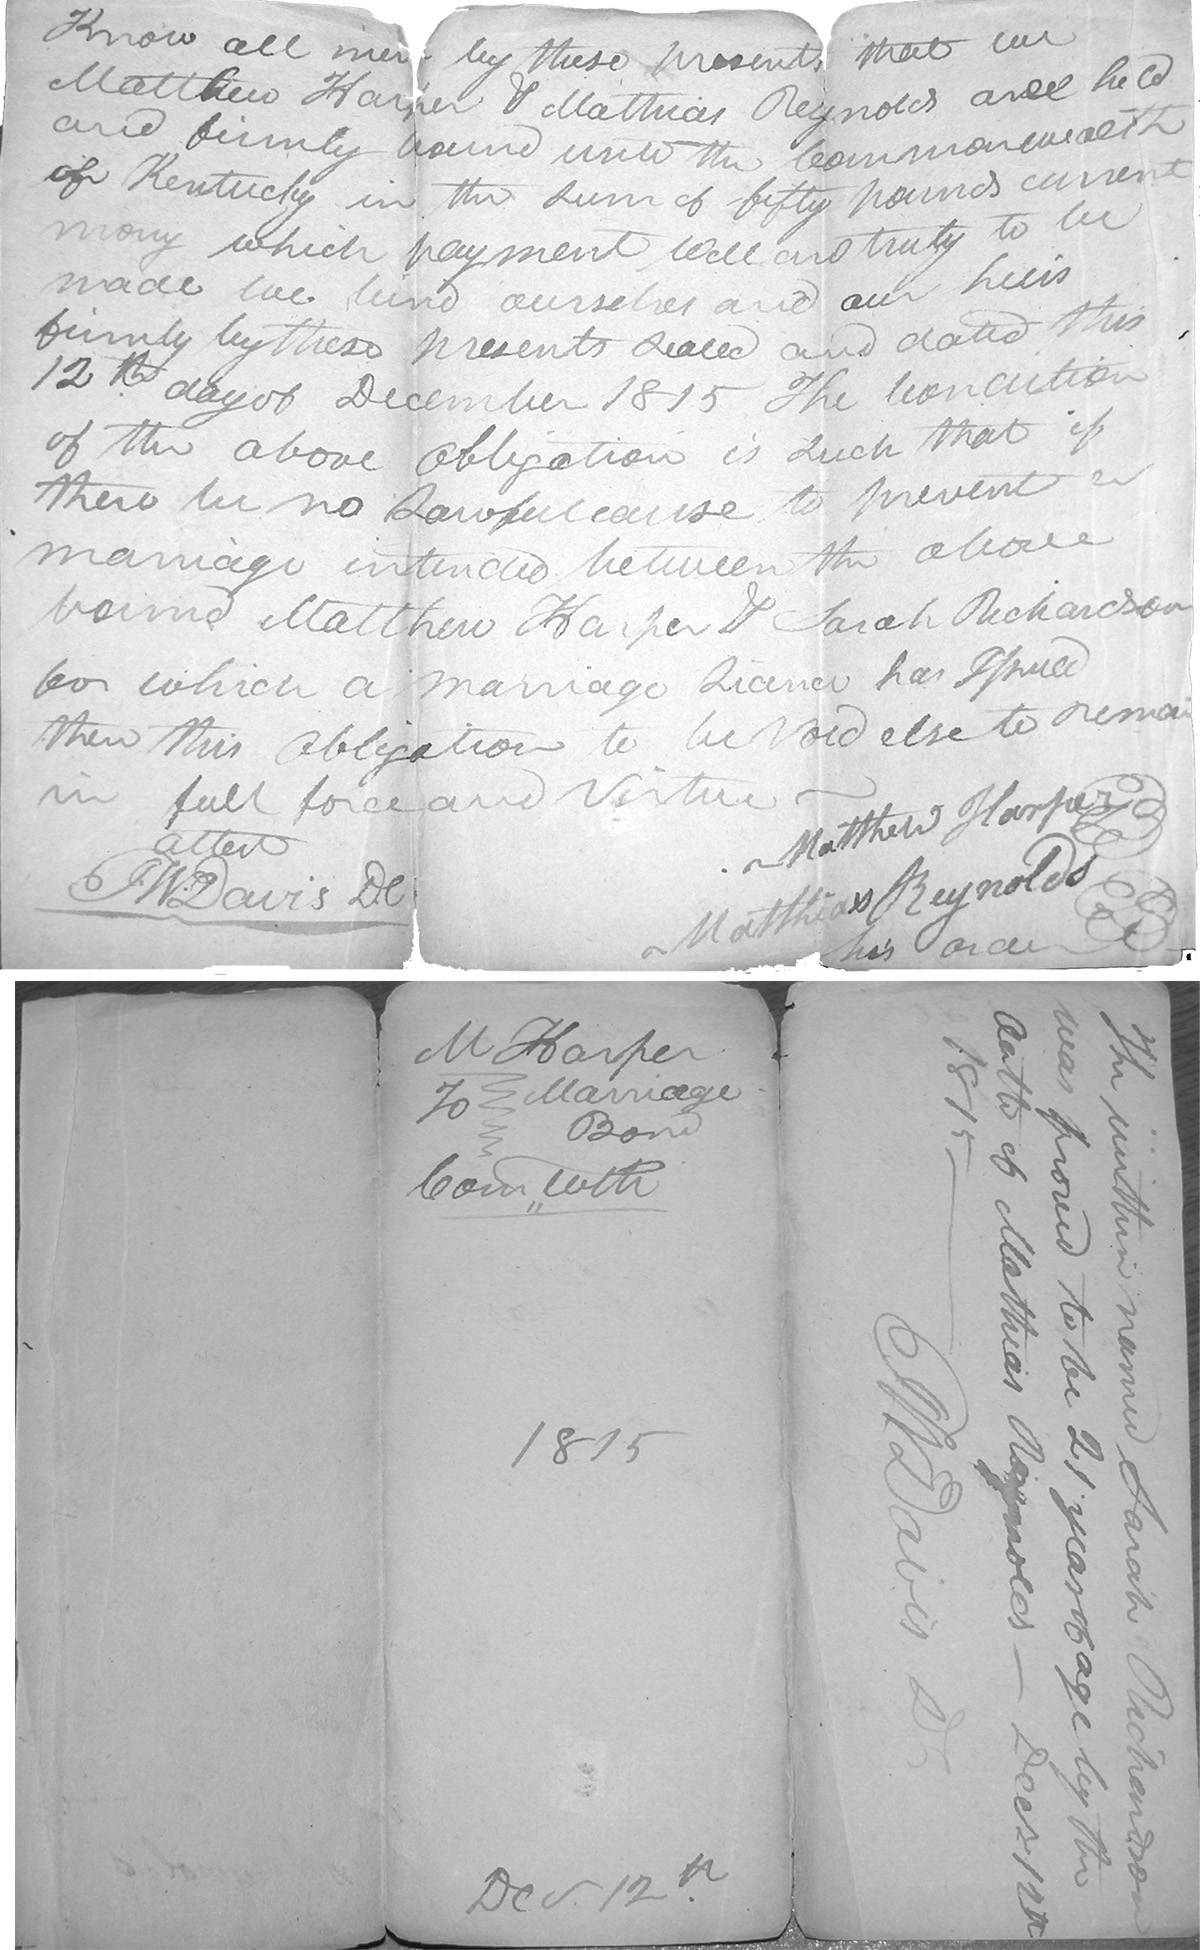 Know all men by these presents that we
Matthew Harper & Matthias Reynolds are held
and firmly bound unto the Commonwealth
of Kentucky in the sum of fifty pounds current
mony which payment well and truly to be
made we bind ourselves and our heirs
firmly by these presents sealed and dated this
12th day of December 1815 The Condition
of the above obligation is such that if
there be no Lawful cause to prevent a
marriage intended between the above
bound Matthew Harper & Sarah Richardson
for which a marriage Licence has Issued
then this obligation to be Void else to remain
in full force and Virtue
attest
J W Davis DC
Matthew Harper
Matthias Reynolds
his order
M Harper
To Marriage
Bond
Com,,wth
1815
Dec. 12th
The within named Sarah Richardson
was proved to be 21 years of age by the
oath of Mathias Reynolds — Decr 12th
1815 —
J W Davis DC